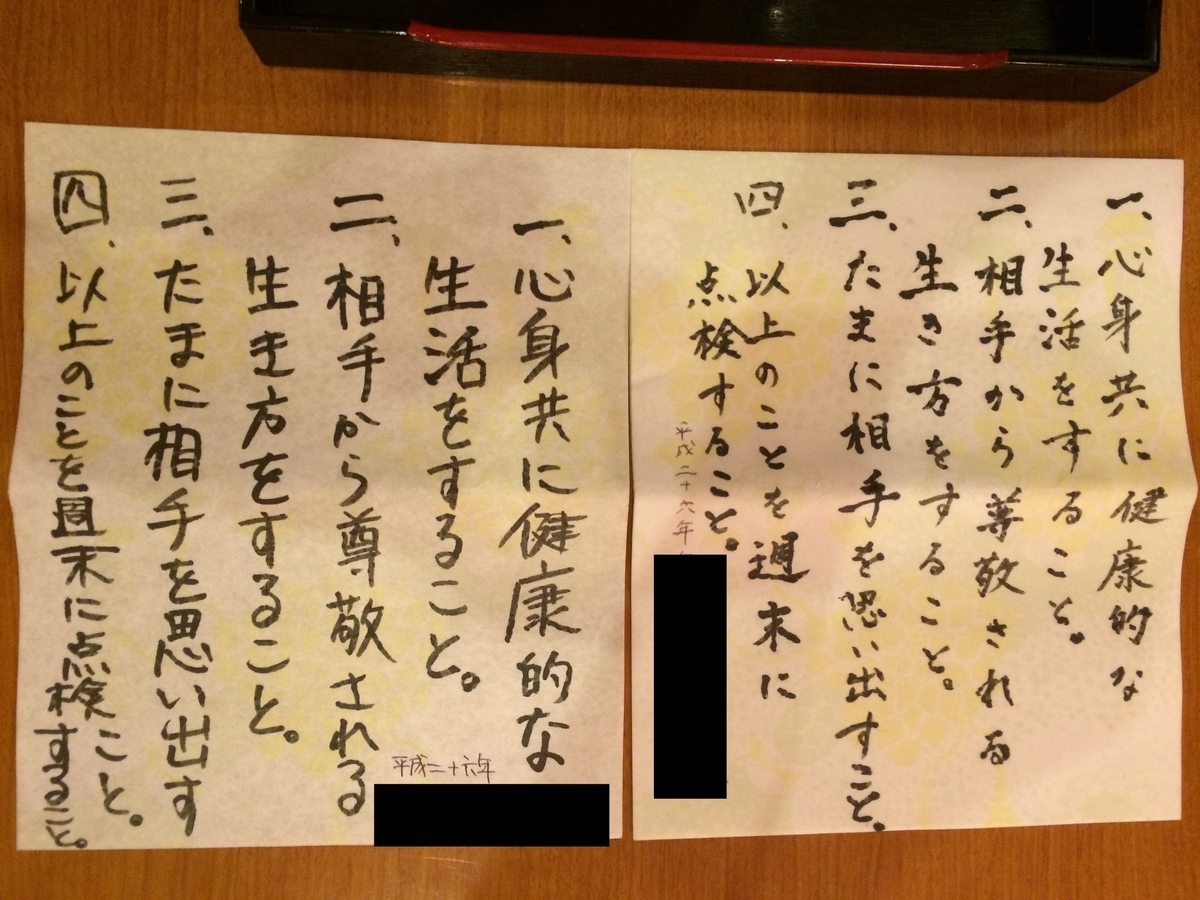 一、心身共に健康的な
生活をすること。
二、相手から尊敬される
生き方をすること。
三、たまに相手を思い出すこと。
四、以上のことを週末に
点検すること。
平成二十六年
一、心身共に健康的な
生活をすること。
二、相手から尊敬される
生き方をすること。
三、たまに相手を思い出す
こと。
四、以上のことを週末に点検すること。
平成二十六年